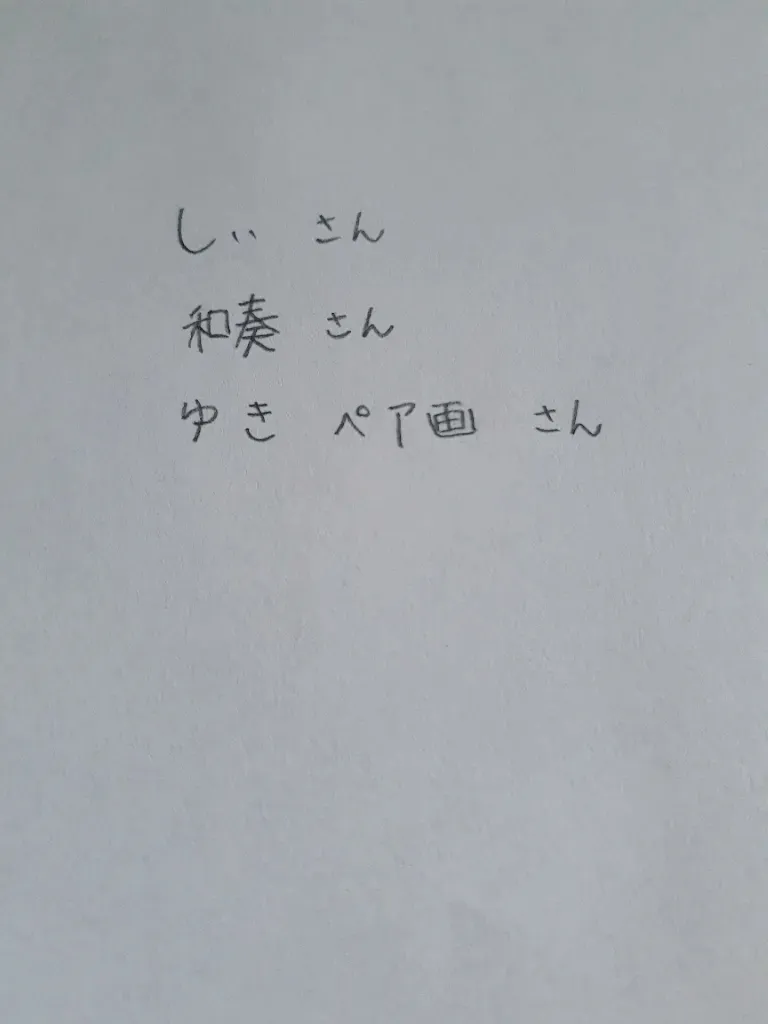 しぃ さん
和奏 さん
ゆき ペア画 さん